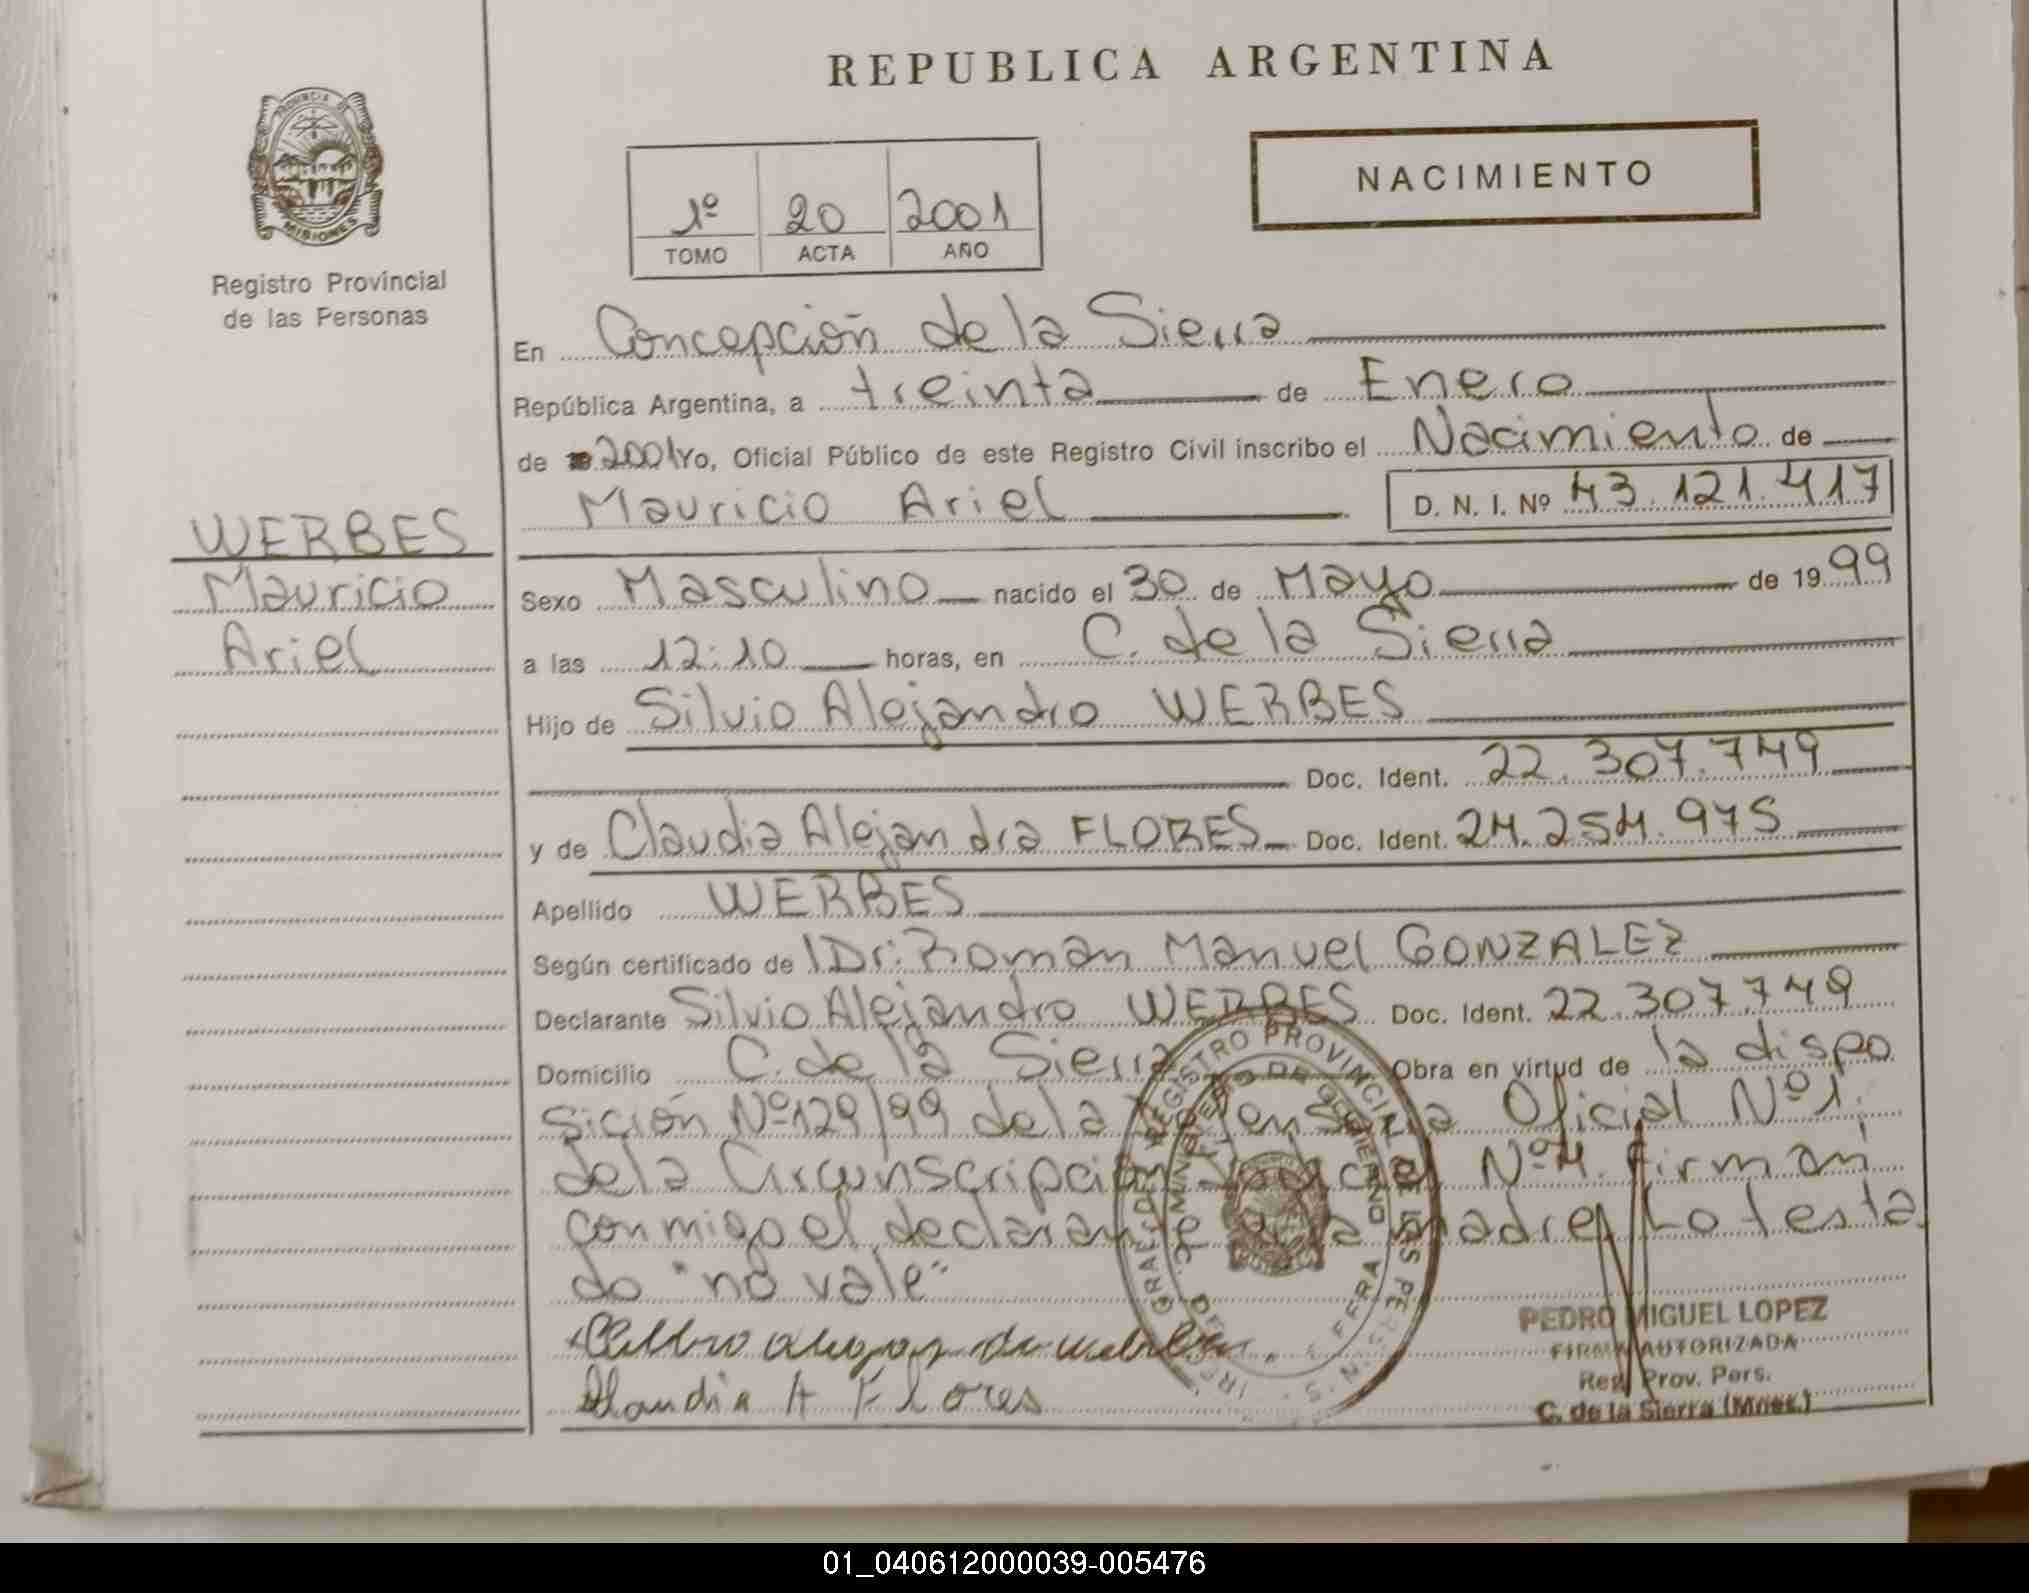 REPUBLICA ARGENTINA
PROVINCIA DE
MISIONES
Registro Provincial
de las Personas
1º 20 2001
TOMO ACTA AÑO
NACIMIENTO
En Concepción de la Sierra
República Argentina, a treinta de Enero
de 2001 Yo, Oficial Público de este Registro Civil inscribo el Nacimiento de
Mauricio Ariel D. N. I. Nº 43.121.417
WERBES
Mauricio
Ariel
Sexo Masculino nacido el 30 de Mayo de 1999
a las 12:10 horas, en C. de la Sierra
Hijo de Silvio Alejandro WERBES
Doc. Ident. 22.307.749
y de Claudia Alejandra FLORES Doc. Ident. 24.254.975
Apellido WERBES
Según certificado de Dr. Roman Manuel GONZALEZ
Declarante Silvio Alejandro WERBES Doc. Ident. 22.307.749
Domicilio C. de la Sierra Obra en virtud de la dispo
sición Nº 129/99 de la Defensoria Oficial Nº 1,
de la Circunscripción Judicial Nº 4. Firman
conmigo el declarante y la madre, Lo testa
do "no vale"
Claudia A Flores
PEDRO MIGUEL LOPEZ
FIRMA AUTORIZADA
Reg. Prov. Pers.
C. de la Sierra (Mnes.)
01_040612000039-005476